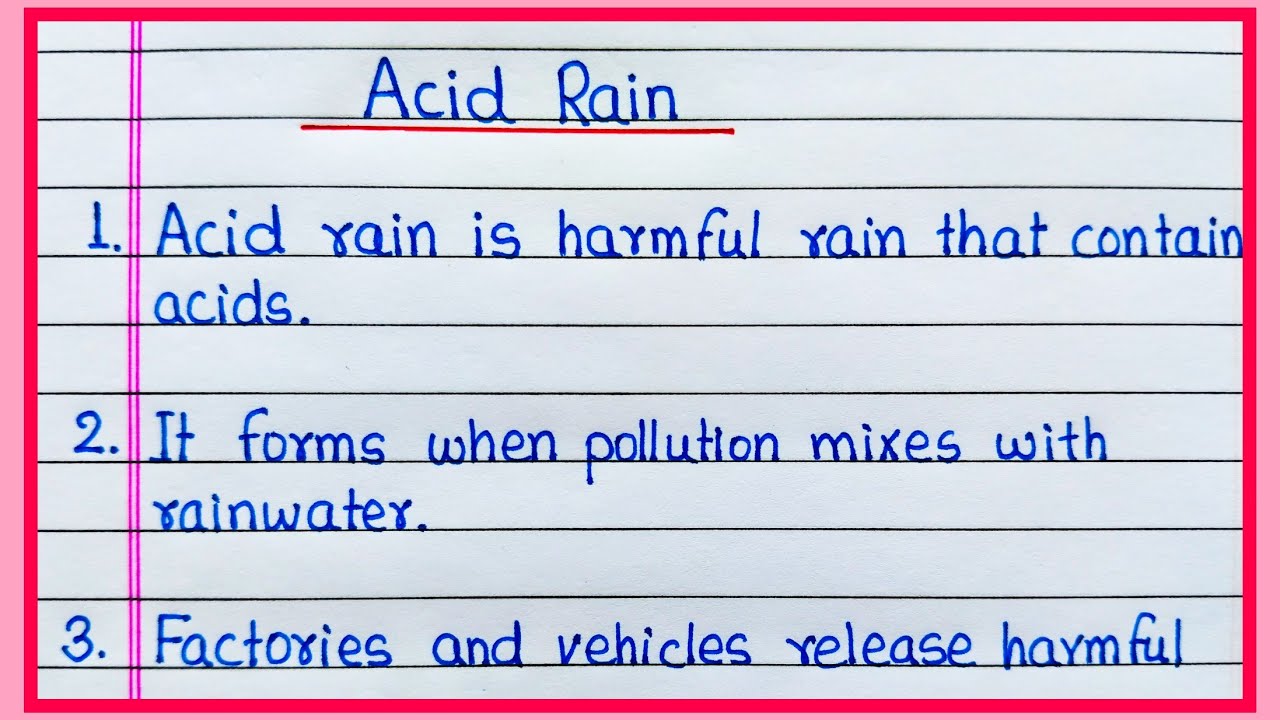 Acid Rain
1. Acid rain is harmful rain that contain
acids.
2. It forms when pollution mixes with
rainwater.
3. Factories and vehicles release harmful